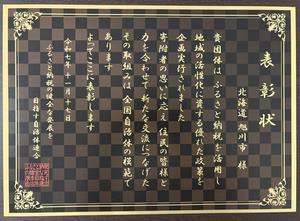 表彰状
北海道 旭川市 様
貴団体は ふるさと納税を活用し
地域の活性化に資する優れた政策を
企画実行されました
寄附者の思いに応え 住民の皆様と
力を合わせて 新たな交流につなげた
その取組みは 全国自治体の模範で
あります
よってここに表彰します
令和七年十一月十七日
ふるさと納税の健全な発展を
目指す自治体連合